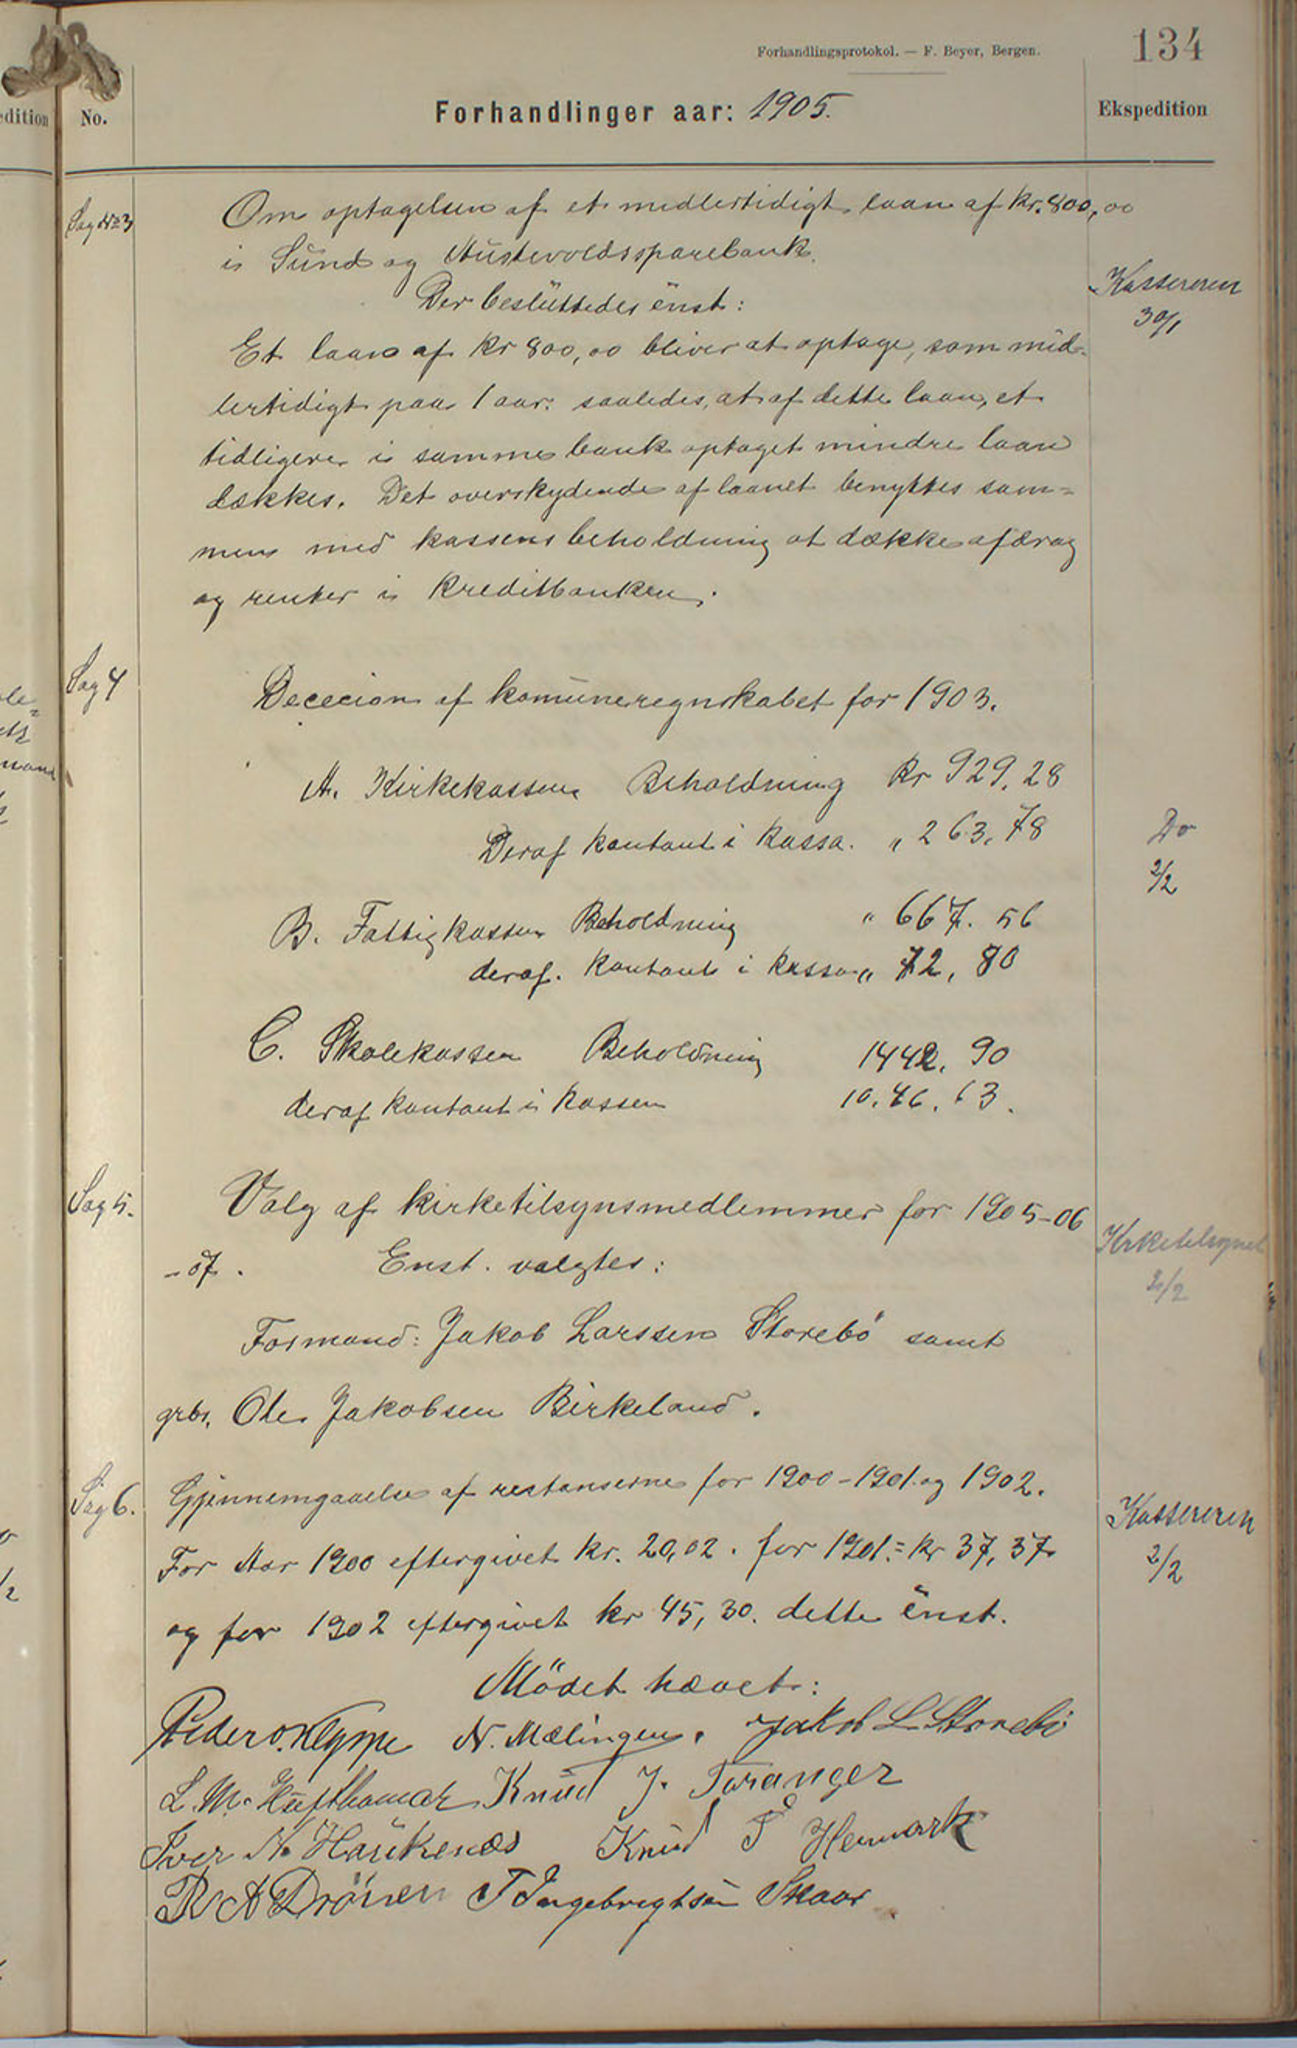 Forhandlingsprotokol. — F. Beyer, Bergen.
134
edition
No.
Forhandlinger aar: 1905.
Ekspedition
Sag No 3
Om optagelsen af et medlertidigt laan af kr. 800,00
i Sund og Austevoldssparebank.
Der besluttedes enst:
Kassereren
30/1
Et laan af kr 800,00 bliver at optage, som mid-
lertidigt paa 1 aar: saaledes, at af dette laan, et
tidligere i samme bank optaget mindre laan
dækkes. Det overskydende af laanet benyttes sam=
men med kassens beholdning at dække afdrag
og renter i Kreditbanken.
Sag 4
Dececion af komuneregnskabet for 1903.
A. Kirkekassen Beholdning kr 929,28
Deraf kontant i kassa. " 263,78
Do
2/2
B. Fattigkassen Beholdning " 667.56
deraf. kontant i kassa " 72,80
C. Skolekassen Beholdning 1442,90
deraf kontant i kassen 10.46.63.
Sag 5.
Valg af kirketilsynsmedlemmer for 1905-06
-07. Enst. valgtes:
Kirketilsynet
2/2
Formand: Jakob Larssen Storebø samt
grbr. Ole Jakobsen Birkeland.
Sag 6.
Gjennemgaaelse af restanserne for 1900-1901 og 1902.
Kassereren
2/2
For Aar 1900 eftergivet kr. 20,02. for 1901:= kr 37,37
og for 1902 eftergivet kr 45,30. dette enst.
Mödet hævet:
Peder O. Kleppe N. Mælingen. Jakob L Storebö
L. M. Hufthamar Knud J. Toranger
Iver N Haukenæs Knud T Heimark
R A Drönen T Ingebrigtsen Skaar